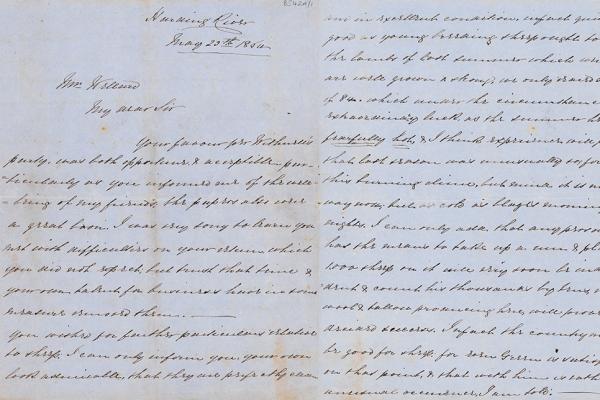 BS424/1
Harding River
May 23rd 1864
Mr. Welland
My dear Sir
Your favour per Withnell's
party, was both opportune, & acceptible par-
ticularly as you informed me of the well
being of my friends, the papers also were
a great boon. I was very sorry to learn you
met with difficulties on your return which
you did not expect, but trust that time &
your own talent for business have in some
measure removed them.
You wished for further particulars relative
to sheep. I can only inform you, your own
look admirable, that they are perfectly clean
and in excellent condition, in fact quite
good as young breeding sheep ought to
the lambs of last summer which
are well grown & strong, we only
of 84. which under the circumstance
extraordinary luck as the summer
fearfully hot, & I think experience will
that last season was unusually so for
this burning clime, but mind it is
way now, but as cold as blazes morning
nights. I can only add that any
has the means to take up a run & place
1000 sheep on it will very soon be
& count his thousands by
wool & tallow producing here, will
success. In fact the country
be good for sheep, for even is
on this point, & that with him is rather
unusual occurrence, I am told.